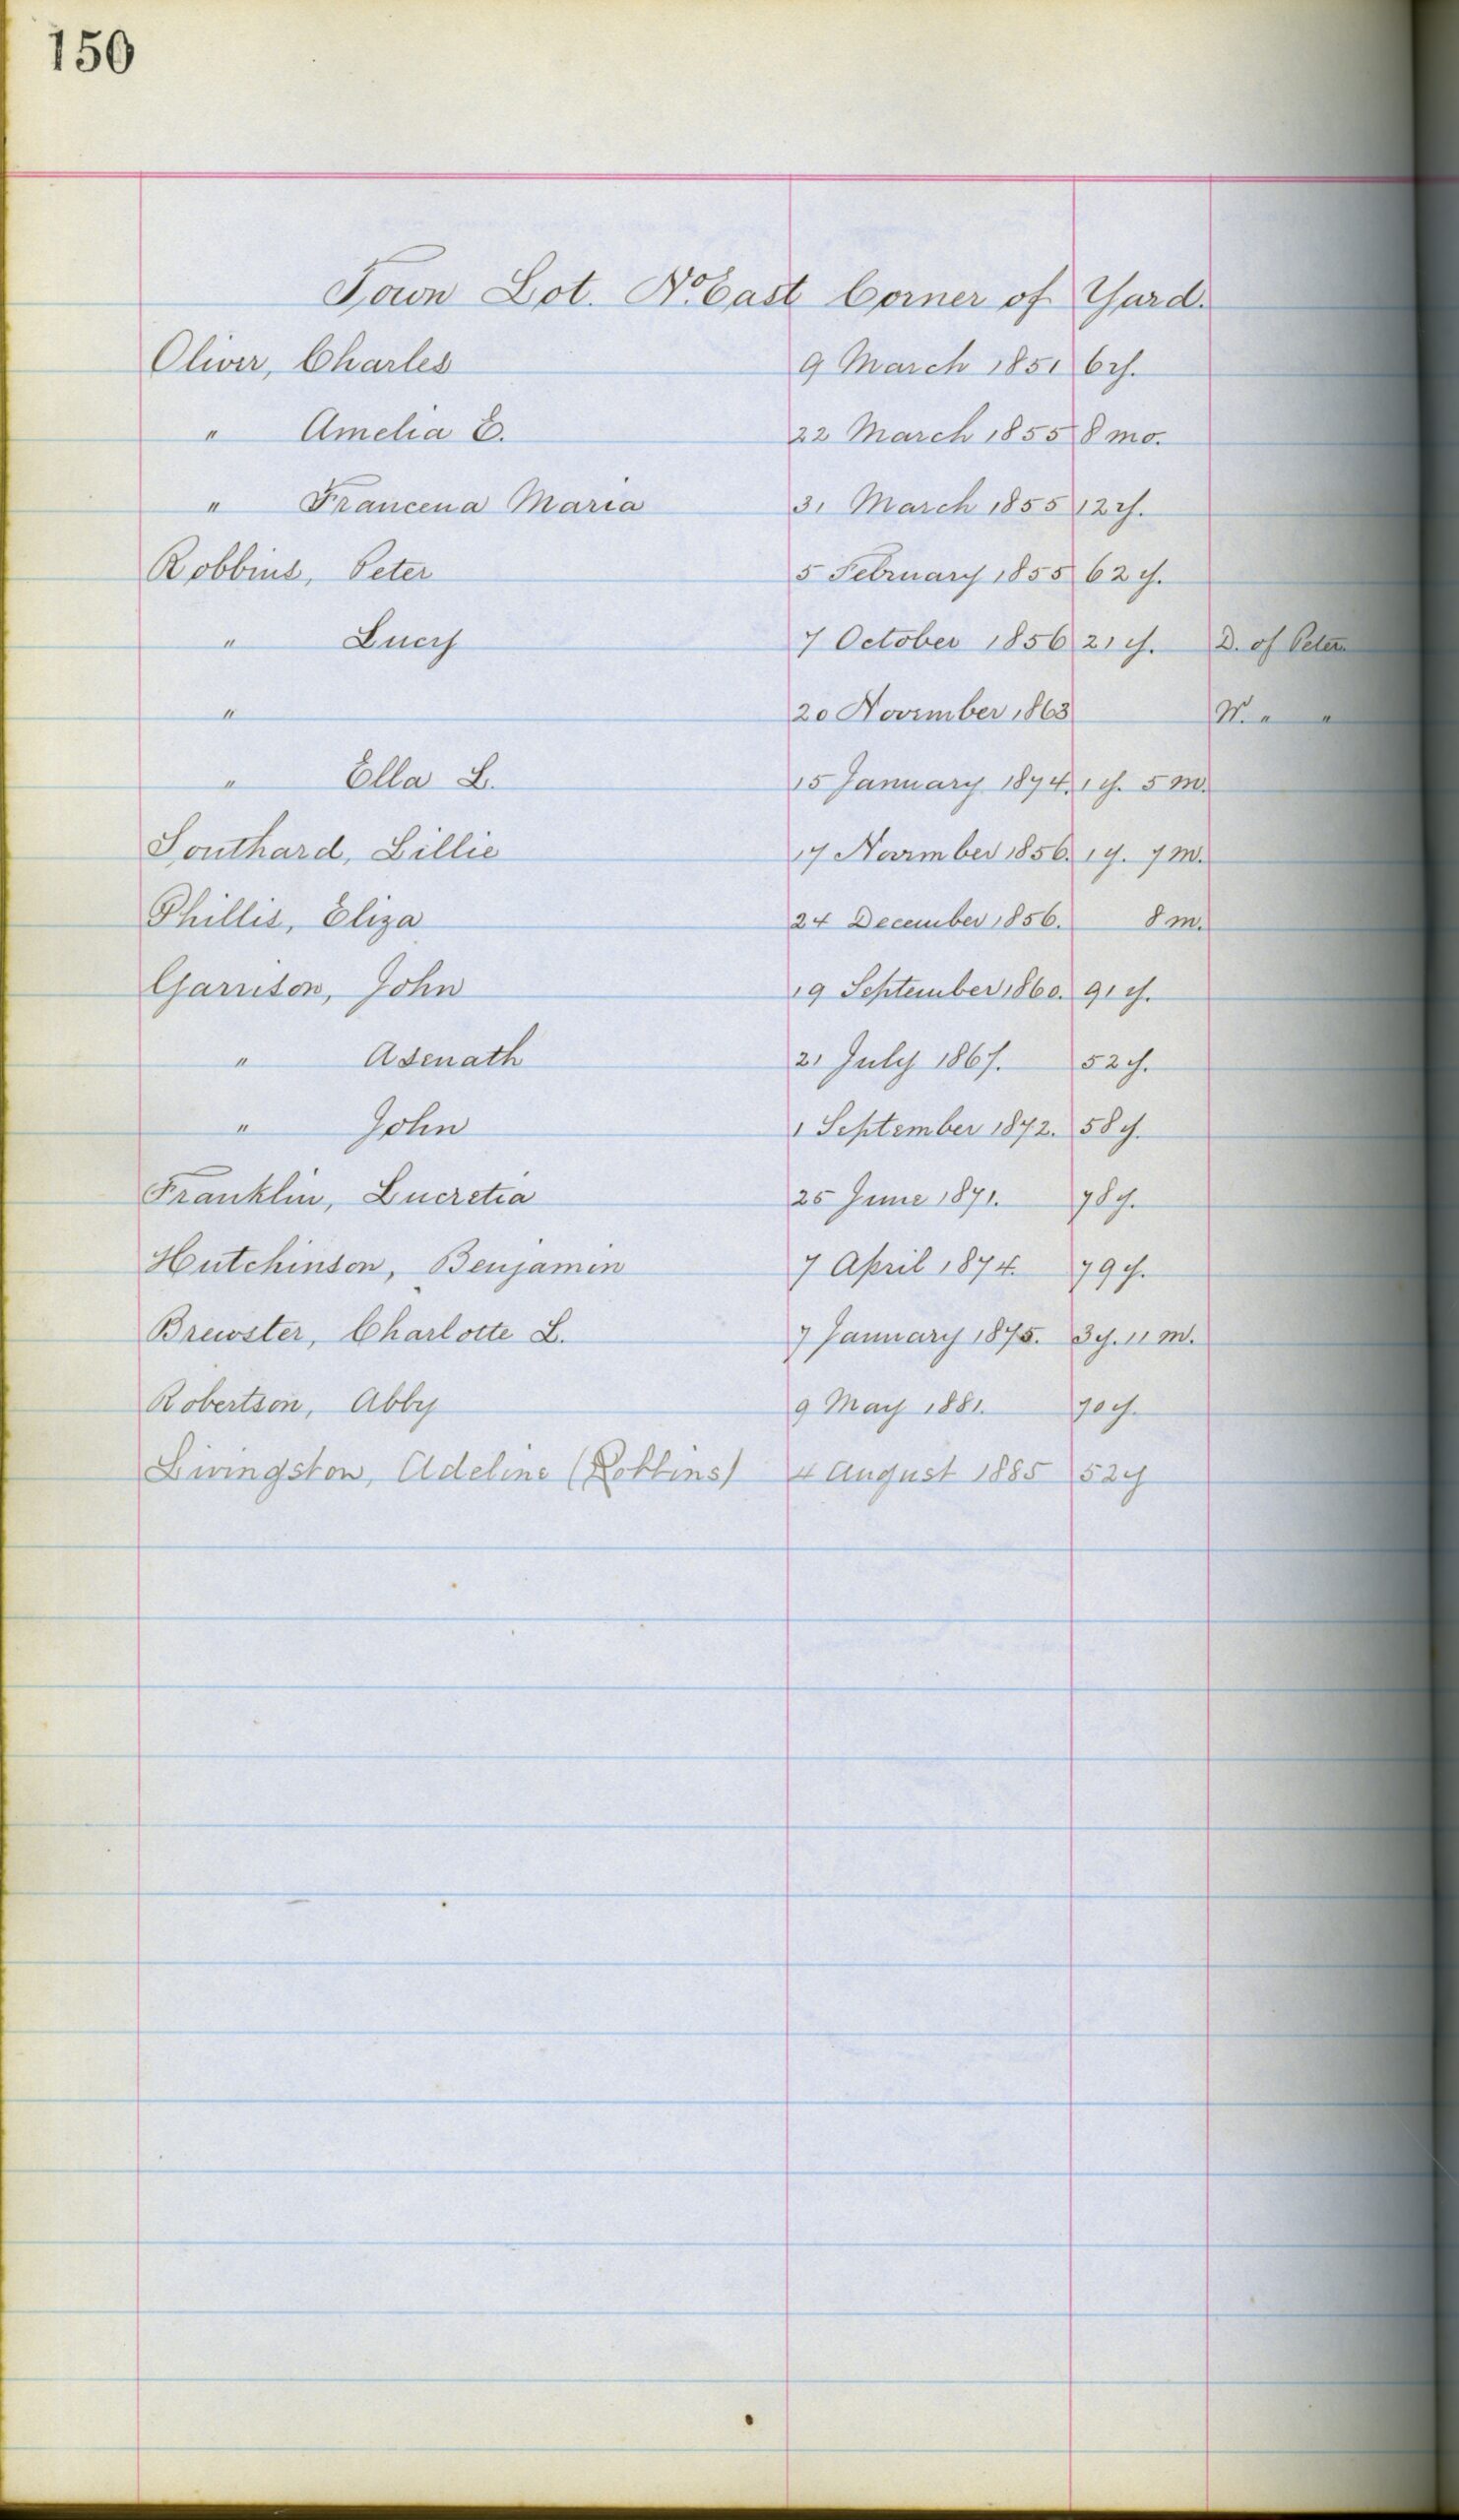 150
Town Lot. No. East Corner of Yard.
Oliver, Charles 9 March 1851 6 y.
" Amelia E. 22 March 1855 8 mo.
" Francena Maria 31 March 1855 12 y.
Robbins, Peter 5 February 1855 62 y.
" Lucy 7 October 1856 21 y. D. of Peter
" 20 November 1863 W. " "
" Ella L. 15 January 1874. 1 y. 5 m.
Southard, Lillie 17 November 1856. 1 y. 7 m.
Phillis, Eliza 24 December 1856. 8 m.
Garrison, John 19 September 1860. 91 y.
" Asenath 21 July 1867. 52 y.
" John 1 September 1872. 58 y.
Franklin, Lucretia 25 June 1871. 78 y.
Hutchinson, Benjamin 7 April 1874. 79 y.
Brewster, Charlotte L. 7 January 1875. 3 y. 11 m.
Robertson, Abby 9 May 1881. 70 y.
Livingston, Adeline (Robbins) 4 August 1885 52 y